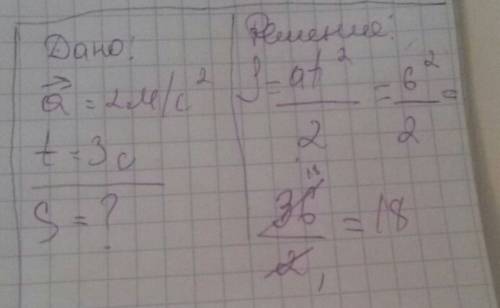 Дано:
a⃗ = 2м/с²
t = 3с
S = ?
Решение:
S = at²/2 = 6²/2 =
36/2 = 18